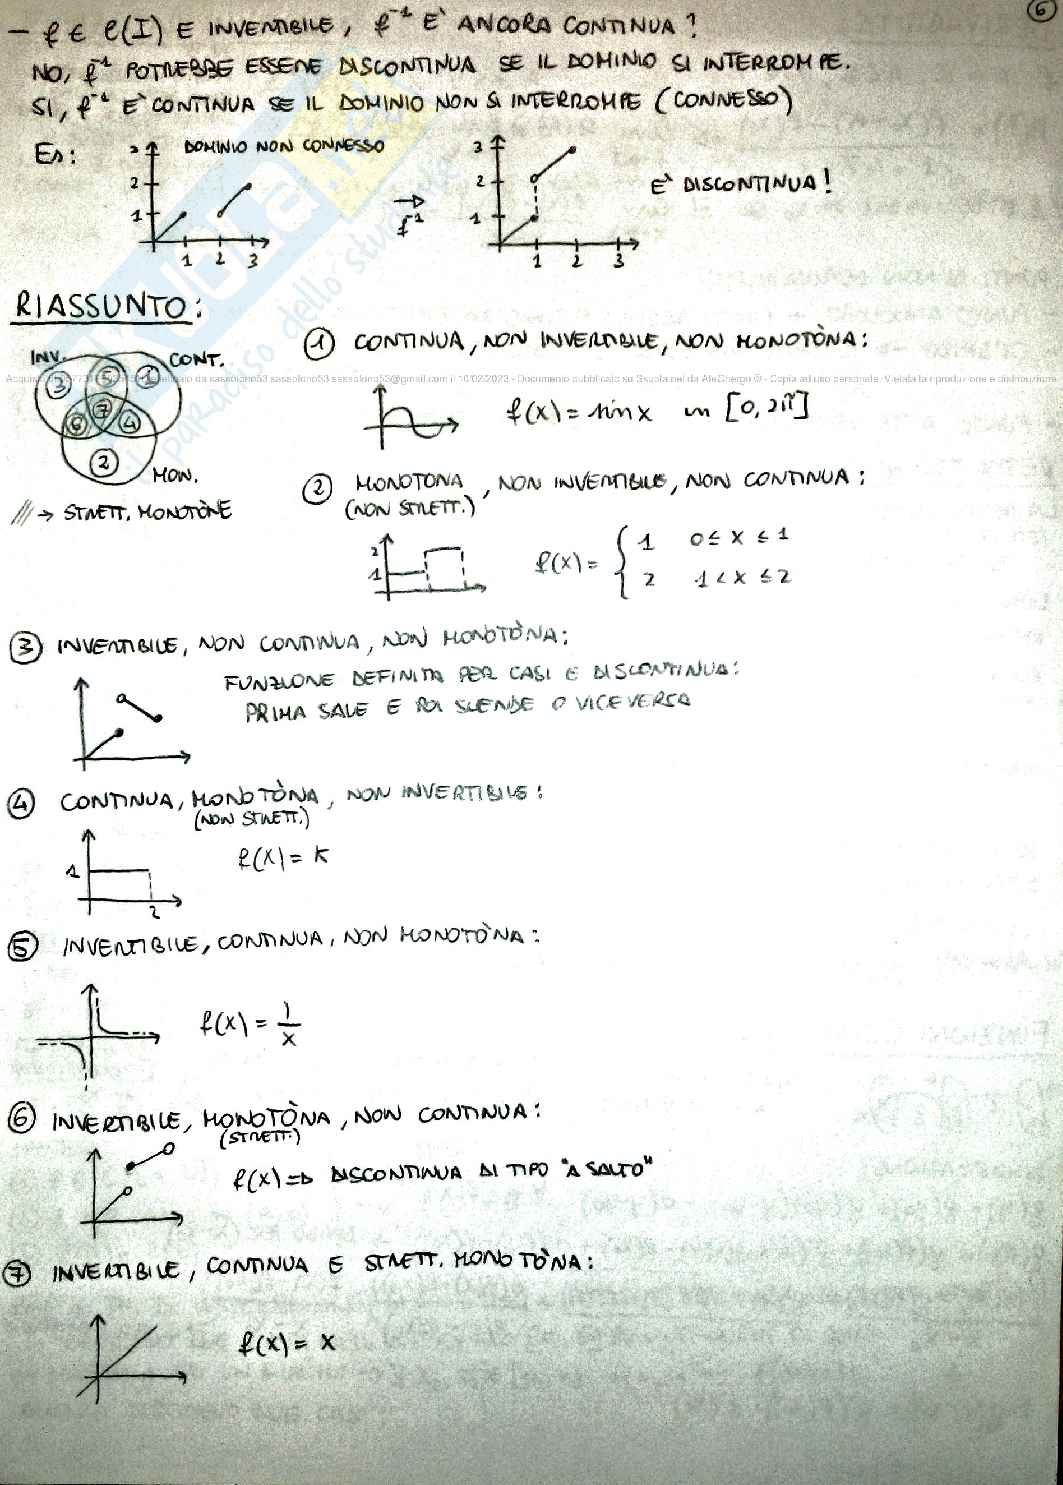 6
- f ∈ C(I) E INVERTIBILE, f⁻¹ E' ANCORA CONTINUA?
NO, f⁻¹ POTREBBE ESSERE DISCONTINUA SE IL DOMINIO SI INTERROMPE.
SI, f⁻¹ E' CONTINUA SE IL DOMINIO NON SI INTERROMPE (CONNESSO)
ES: DOMINIO NON CONNESSO
3 2 1 1 2 3
f⁻¹
3 2 1 1 2 3
E' DISCONTINUA!
RIASSUNTO:
INV. CONT.
3 5 1
6 7 4
2
MON.
/// → STRETT. MONOTÒNE
① CONTINUA, NON INVERTIBILE, NON MONOTÒNA:
Documento pubblicato su Skuola.net da AleChergo © - Copia ad uso personale. Vietata la riproduzione e distribuzione
f(x) = sin x in [0, 2π]
② MONOTONA, NON INVERTIBILE, NON CONTINUA:
(NON STRETT.)
2 1
f(x) = { 1 0 ≤ x ≤ 1
2 1 < x ≤ 2
③ INVERTIBILE, NON CONTINUA, NON MONOTÒNA:
FUNZIONE DEFINITA PER CASI E DISCONTINUA:
PRIMA SALE E POI SCENDE O VICEVERSA
④ CONTINUA, MONOTÒNA, NON INVERTIBILE:
(NON STRETT.)
1 2
f(x) = K
⑤ INVERTIBILE, CONTINUA, NON MONOTÒNA:
f(x) = 1/x
⑥ INVERTIBILE, MONOTÒNA, NON CONTINUA:
(STRETT.)
f(x) ⇒ DISCONTINUA DI TIPO "A SALTO"
⑦ INVERTIBILE, CONTINUA E STRETT. MONOTÒNA:
f(x) = x